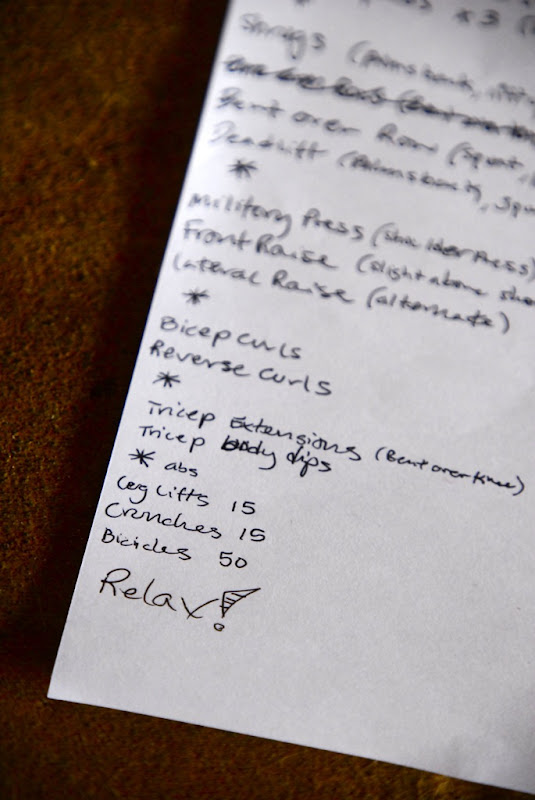 x3
Shrugs (Palms back,
Bent over Row (Squat,
Deadlift (Palms back, squ
*
Military Press (shoulder Press)
Front Raise (slight above sho
Lateral Raise (alternate)
*
Bicep curls
Reverse curls
*
Tricep Extensions (Bent over knee)
Tricep body dips
* abs
Leg Lifts 15
Crunches 15
Bicicles 50
Relax!